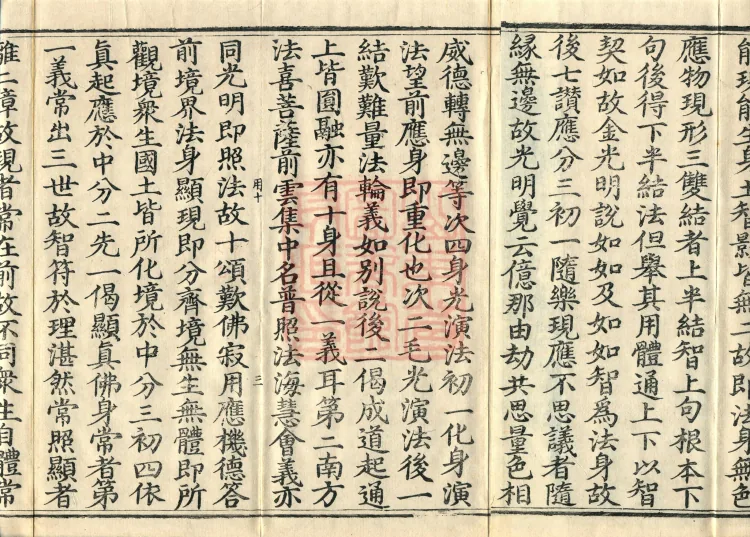 能現能生身土智影皆無二故即法身無色
應物現形三雙結者上半結智上句根本下
句後得下半結法但舉其用體通上下以智
契如故金光明說如如及如如智為法身故
後七讃應分三初一隨樂現應不思議者隨
緣無邊故光明覺云億那由劫共思量色相
威德轉無邊等次四身光演法初一化身演
法望前應身即重化也次二毛光演法後一
結歎難量法輪義如別說後二偈成道起通
上皆圓融亦有十身且從一義耳第二南方
法喜菩薩前雲集中名普照法海慧會義亦
用十 三
同光明即照法故十頌歎佛寂用應機德答
前境界法身顯現即分齊境無生無體即所
觀境衆生國土皆所化境於中分三初四依
真起應於中分二先一偈顯真佛身常者第
一義常出三世故智符於理湛然常照顯者
離二障故現者常在前故不同衆生自體常